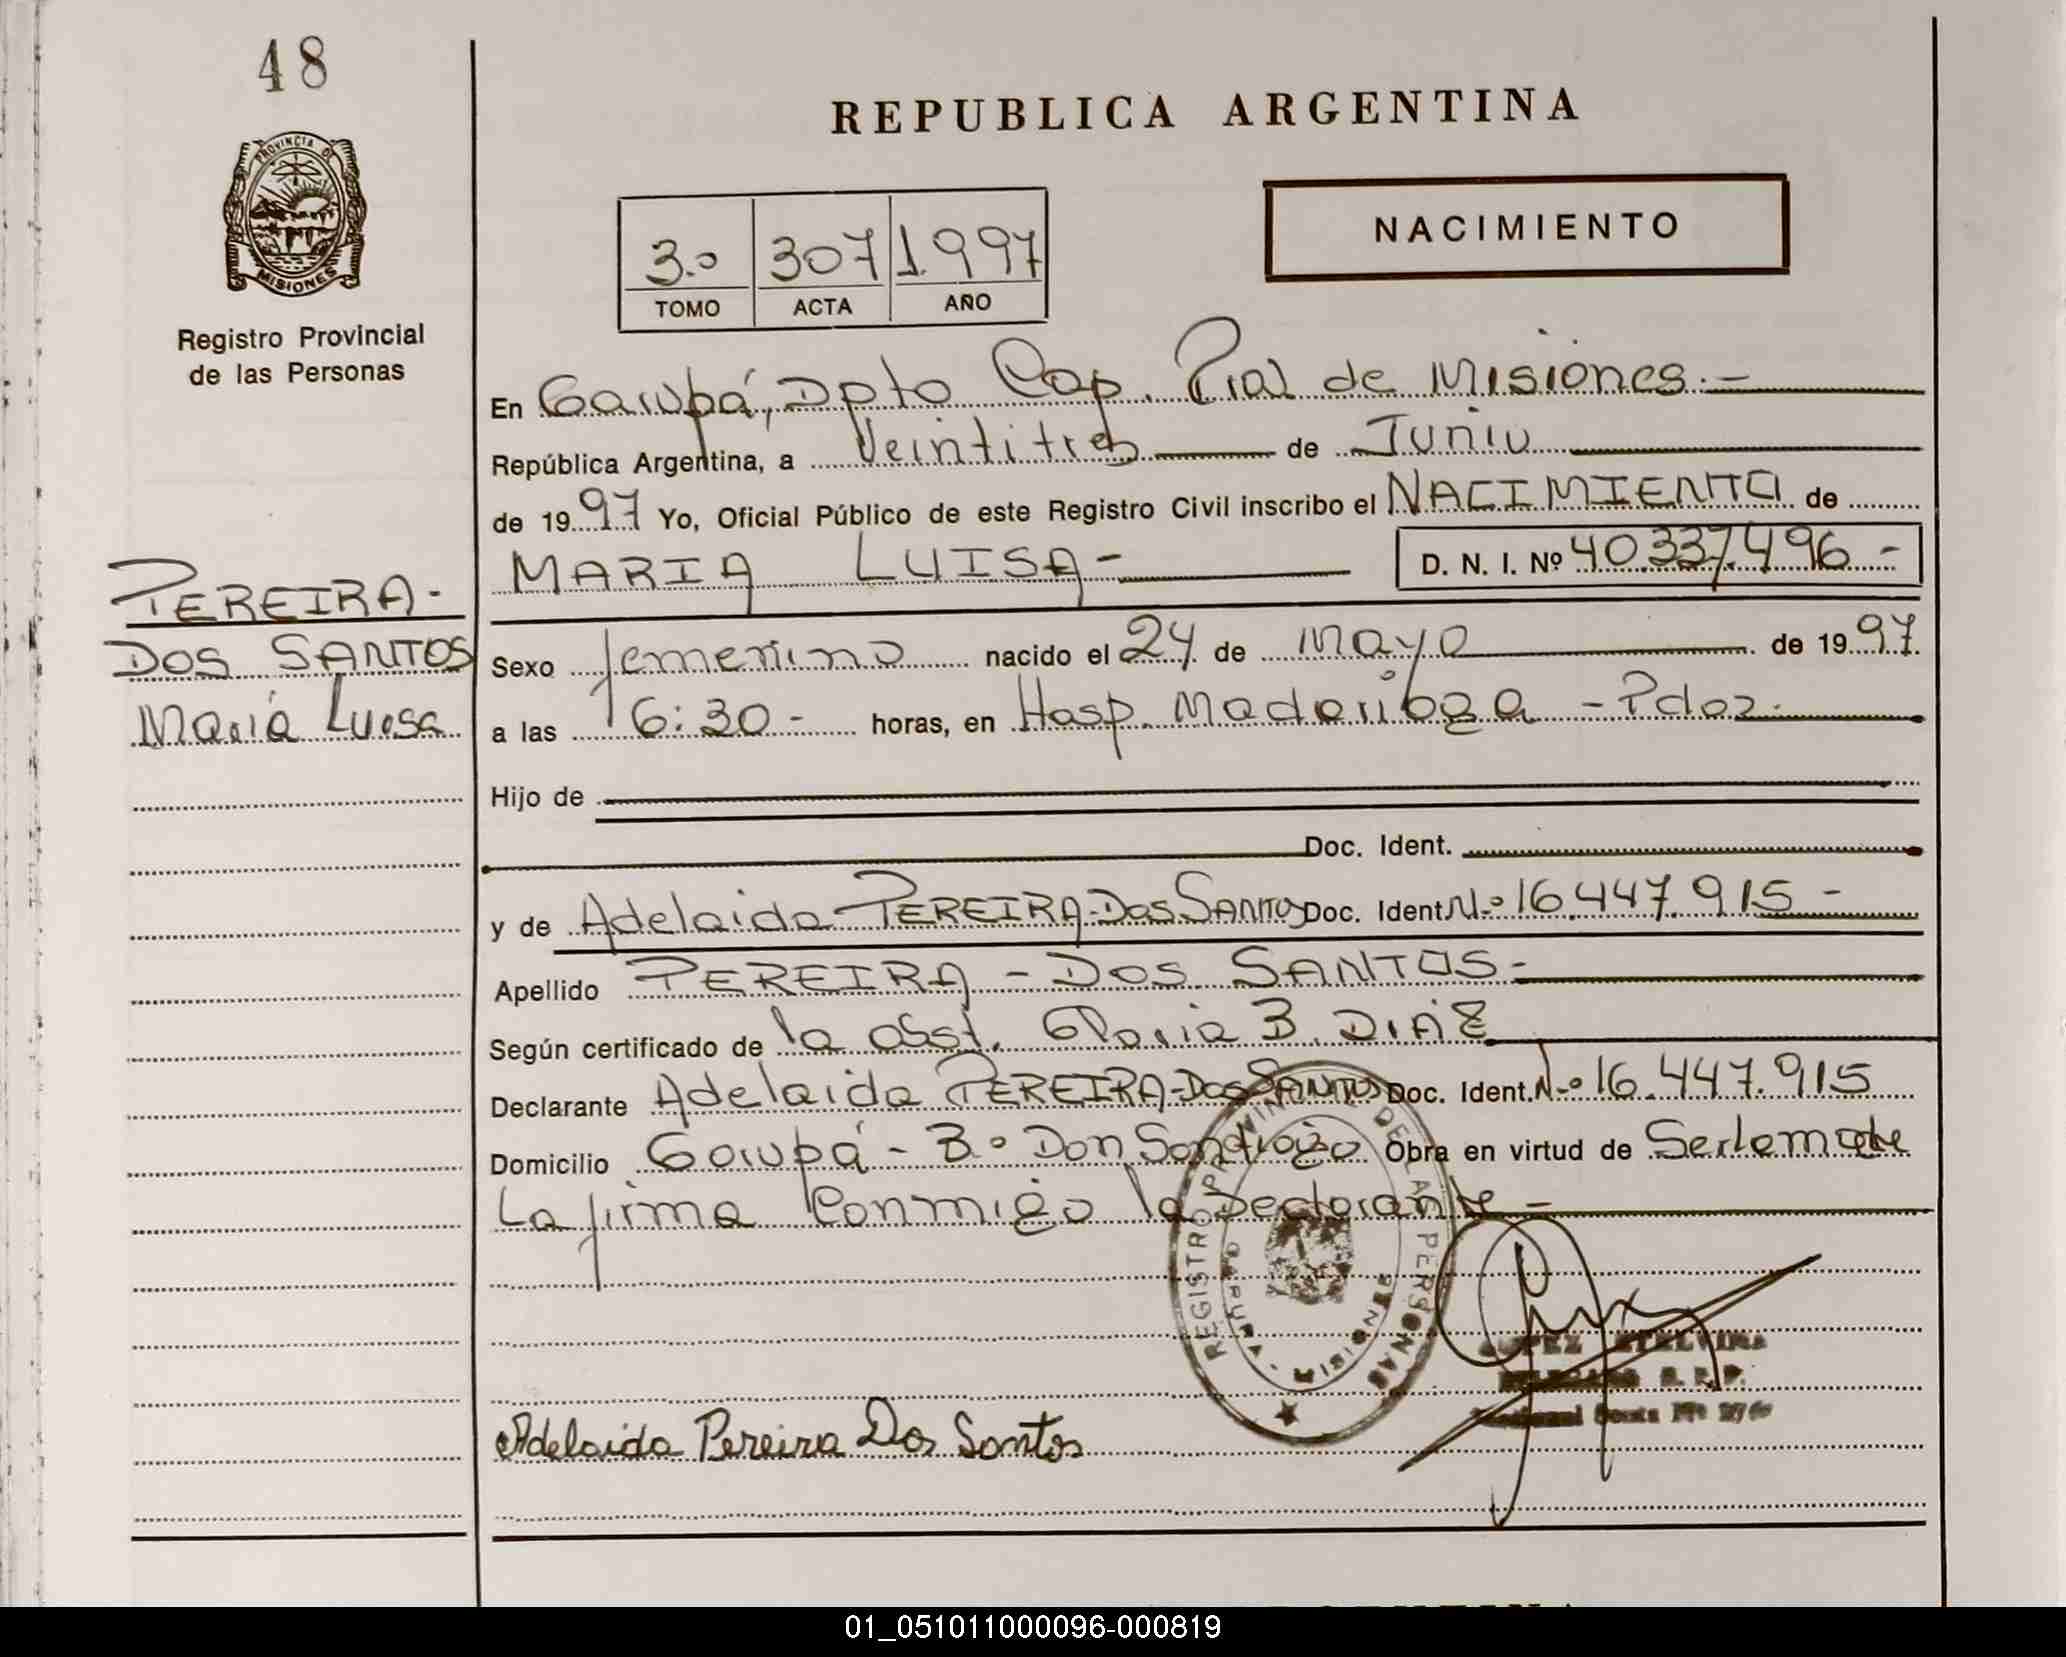 48
REPUBLICA ARGENTINA
NACIMIENTO
PROVINCIA DE
MISIONES
3.º 307 1.997
TOMO ACTA AÑO
Registro Provincial
de las Personas
En Garupá, Dpto Cap. Pcial de Misiones.-
República Argentina, a Veintitres de Junio
de 1997 Yo, Oficial Público de este Registro Civil inscribo el NACIMIENTO de
MARIA LUISA- D. N. I. Nº 40.337.496-
PEREIRA-
DOS SANTOS
María Luisa
Sexo femenino nacido el 24 de Mayo de 1997.
a las 16:30- horas, en Hosp. Madariaga - Pdas.
Hijo de
Doc. Ident.
y de Adelaida PEREIRA-DOS SANTOS Doc. Ident. N.º 16.447.915-
Apellido PEREIRA - DOS SANTOS-
Según certificado de la obst. Gloria B. DIAZ
Declarante Adelaida PEREIRA-DOS SANTOS Doc. Ident. N.º 16.447.915
Domicilio Garupá - B.º Don Santiago Obra en virtud de Serlemadre
La firma Conmigo la Declarante-
REGISTRO PROVINCIAL DE LAS PERSONAS
GARUPA - MISIONES
LOPEZ ETELVINA
Adelaida Pereira Dos Santos
01_051011000096-000819